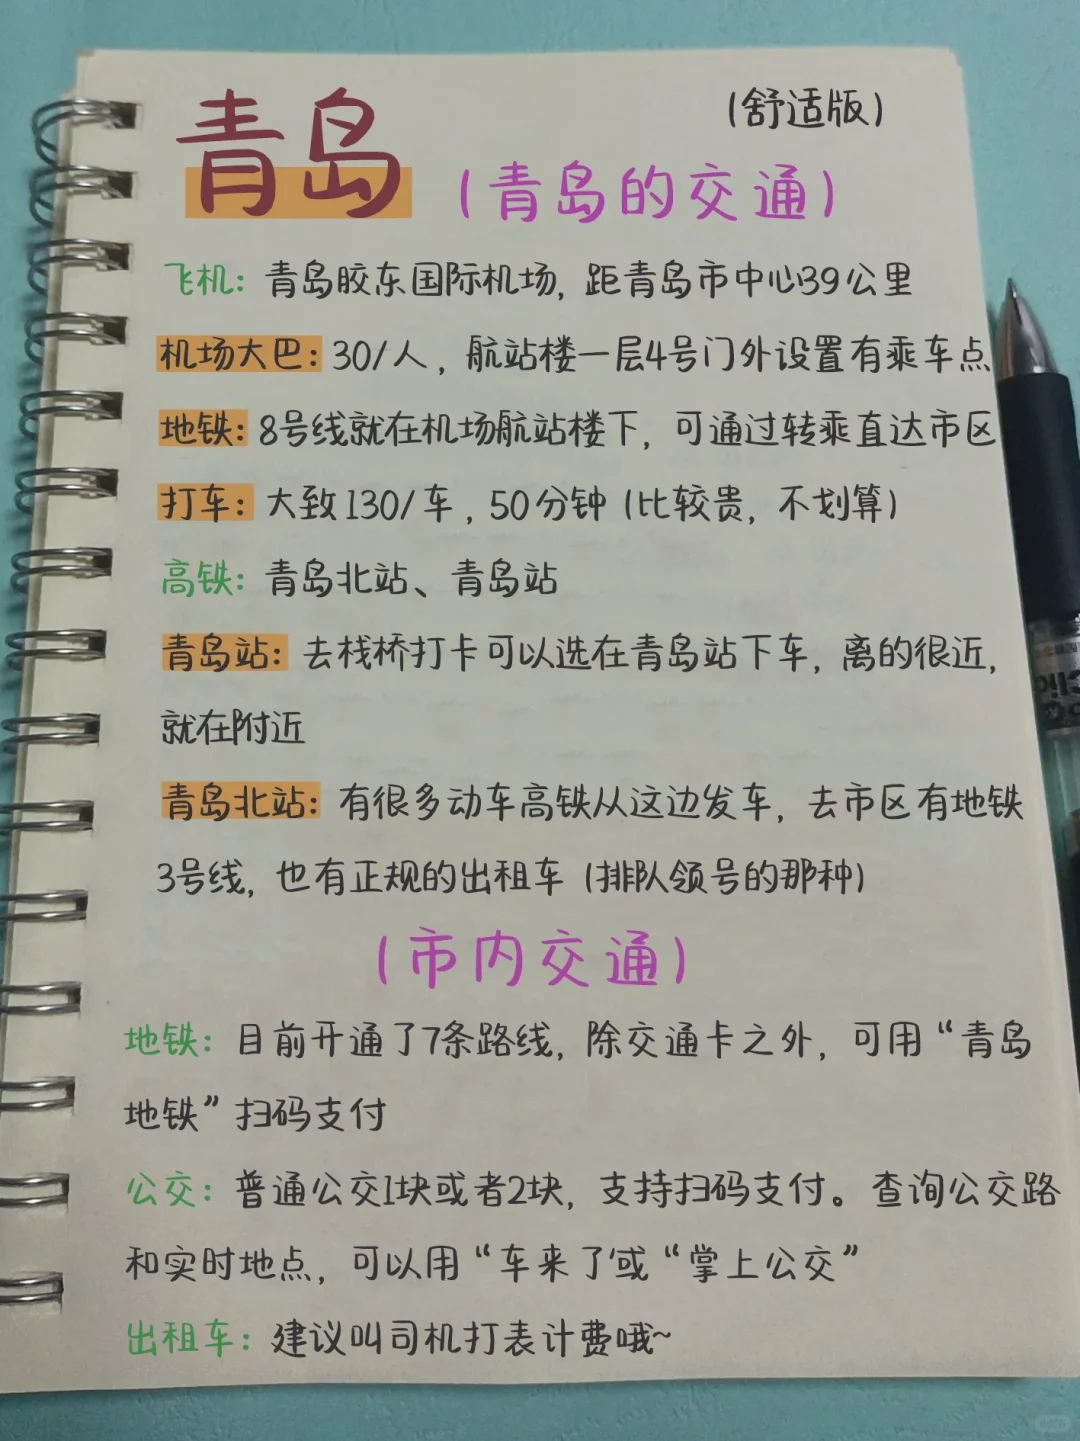 青岛
(舒适版)
(青岛的交通)
飞机：青岛胶东国际机场，距青岛市中心39公里
机场大巴：30/人，航站楼一层4号门外设置有乘车点
地铁：8号线就在机场航站楼下，可通过转乘直达市区
打车：大致130/车，50分钟(比较贵，不划算)
高铁：青岛北站、青岛站
青岛站：去栈桥打卡可以选在青岛站下车，离的很近，
就在附近
青岛北站：有很多动车高铁从这边发车，去市区有地铁
3号线，也有正规的出租车(排队领号的那种)
(市内交通)
地铁：目前开通了7条路线，除交通卡之外，可用“青岛
地铁”扫码支付
公交：普通公交1块或者2块，支持扫码支付。查询公交路
和实时地点，可以用“车来了”或“掌上公交”
出租车：建议叫司机打表计费哦~